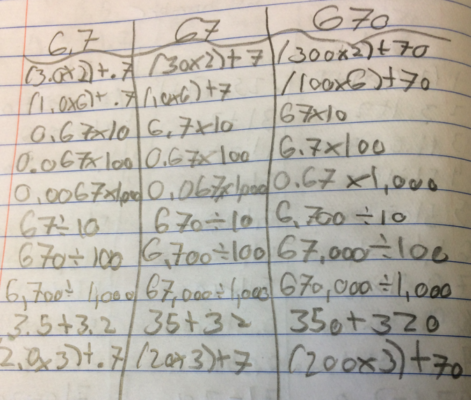 6.7 67 670
(3.0x2)+.7 (30x2)+7 (300x2)+70
(1.0x6)+.7 (10x6)+7 (100x6)+70
0.67x10 6.7x10 67x10
0.067x100 0.67x100 6.7x100
0.0067x1,000 0.067x1,000 0.67x1,000
67÷10 670÷10 6,700÷10
670÷100 6,700÷100 67,000÷100
6,700÷1,000 67,000÷1,000 670,000÷1,000
3.5+3.2 35+32 350+320
2.0x3)+.7 (20x3)+7 (200x3)+70